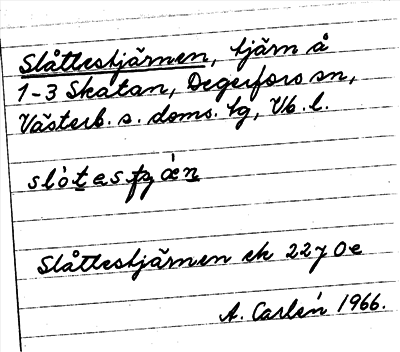 Slåttestjärnen, tjärn å
1-3 Skatan, Degerfors sn,
Västerb. s. doms. tg, Vb. l.
Slåttestjärnen ek 22y 0e
A. Carlén 1966.